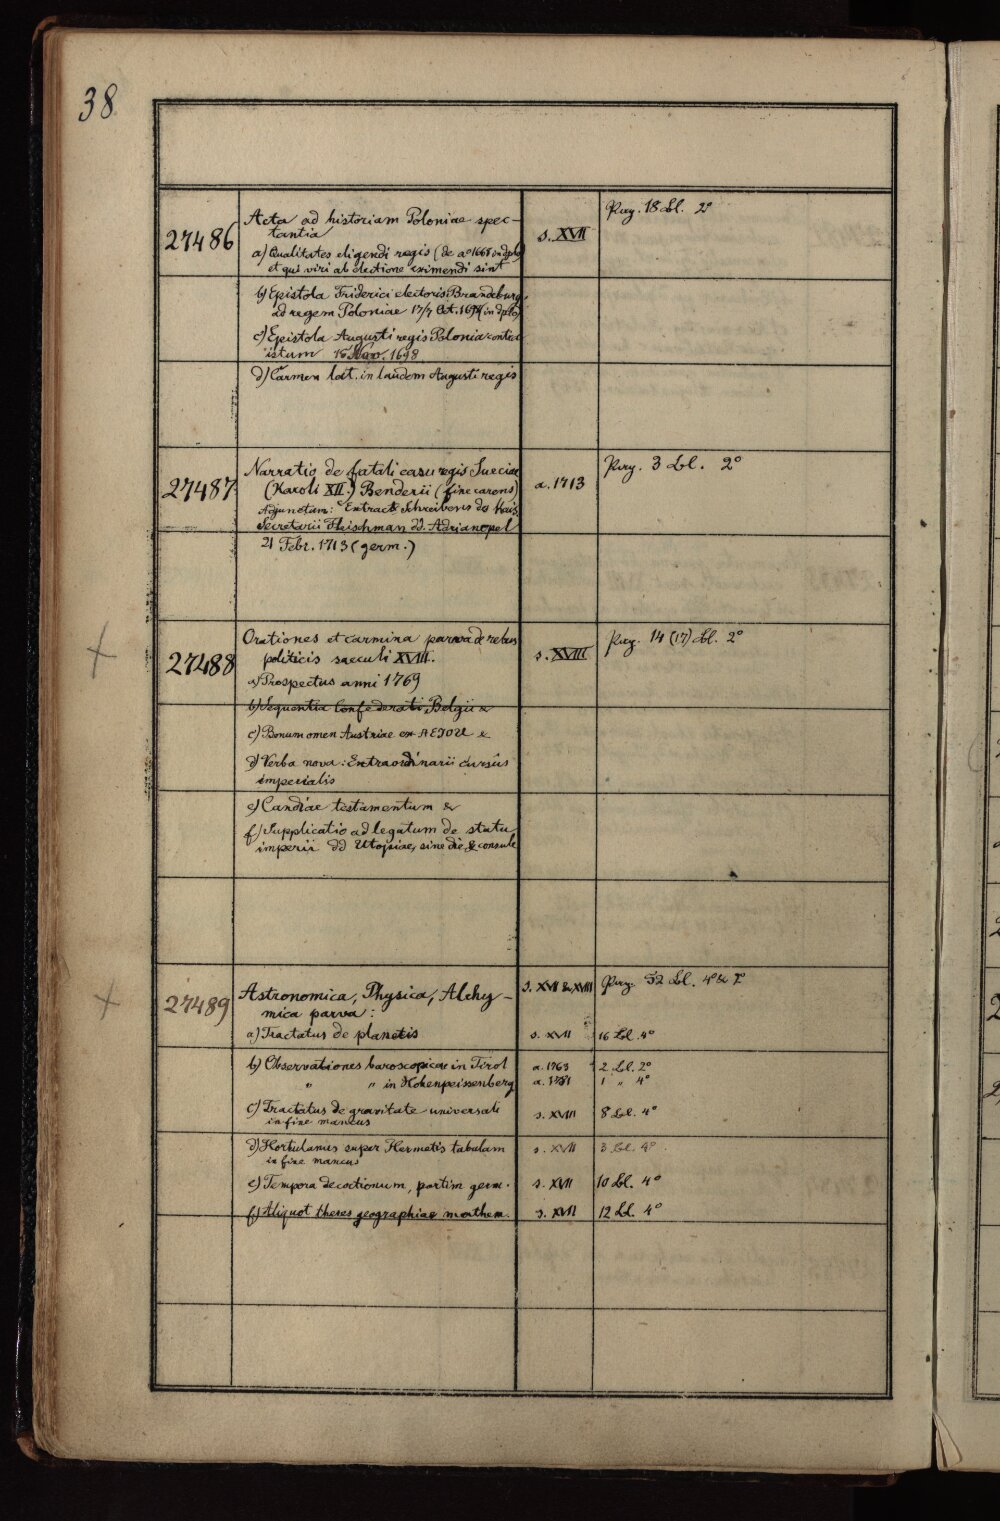 38
27486
Acta ad historiam Poloniae spec-
tantia
s. XVII
Pag. 18 Bl. 2°
a) Qualitates eligendi regis (de a° 1668 in dplo)
et qui viri ab electione eximendi sint
b) Epistola Friderici electoris Brandeburg.
ad regem Poloniae 17/7 Oct. (in dplo)
c) Epistola Augusti regis Polonia contra
istum Nov. 1698
d) Carmen lat. in laudem Augusti regis
27487.
Narratio de fatali casu regis Sueciae
(Karoli XII.) Benderii (fine carens)
a. 1713
Pag. 3 Bl. 2°
Adjunctum: Extract Schreibens des Kais
Secretarii Fleischman dd. Adrianopel
21 Febr. 1713 (germ.)
27488
Orationes et carmina parva de rebus
politicis saeculi XVIII.
s. XVIII
Pag. 14 (17) Bl. 2°
a) Prospectus anni 1769
b) Sequentia Confederati Belgii &
c) Bonum omen Austriae ex AEIOU &
d) Verba nova: Extraordinarii cursûs
imperialis
e) Candiae testamentum &
f) Supplicatio ad legatum de statu
imperii dd Utopiae, sine die & consule
27489
Astronomica, Physica, Alchy-
mica parva:
s. XVII & XVIII
Pag. 52 Bl. 4° & 2°
a) Tractatus de planetis s. XVII 16 Bl. 4°
b) Observationes baroscopicae in Tirol a. 1763 2 Bl. 2°
" " in Hohenpeissenberg a. 1781 1 " 4°
c) Tractatus de gravitate universali s. XVIII 8 Bl. 4°
in fine mancus
d) Hortulanus super Hermetis tabulam s. XVII 3 Bl. 4°
in fine mancus
e) Tempora decoctionum, partim germ. s. XVII 10 Bl. 4°
f) Aliquot theses geographiae mathem. s. XVII 12 Bl. 4°